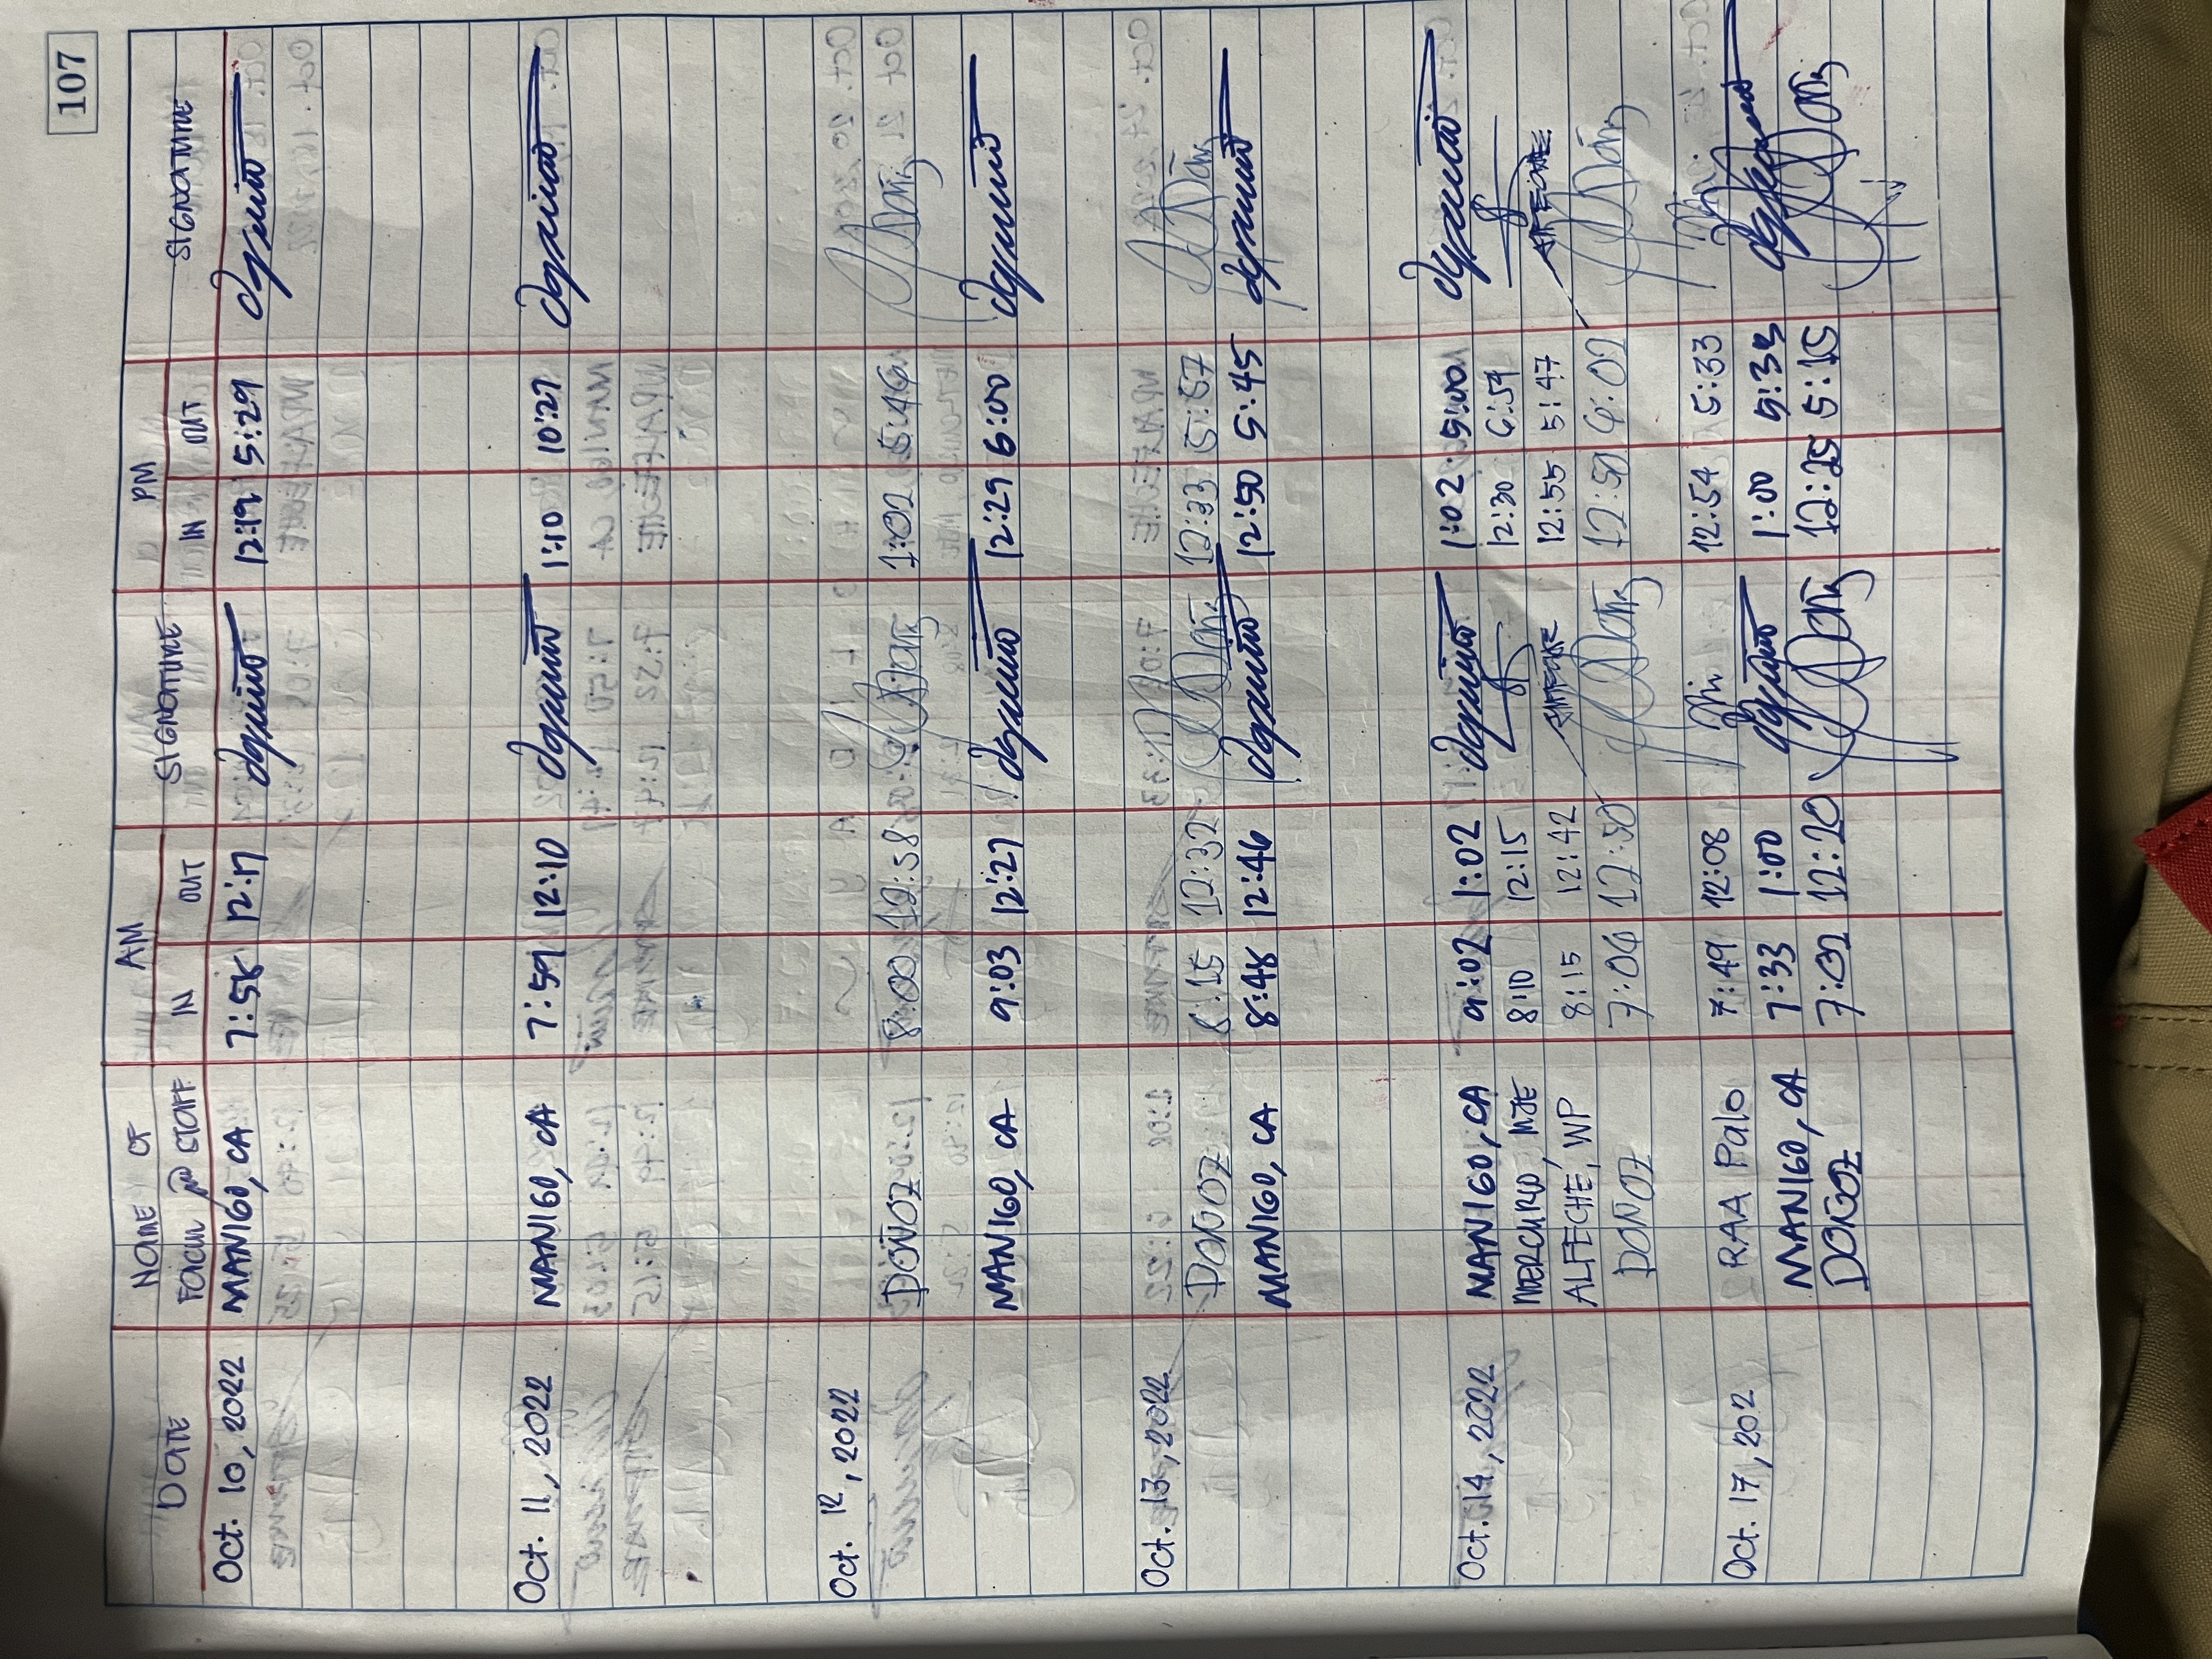 107
DATE NAME OF FACULTY and STAFF AM SIGNATURE PM SIGNATURE
IN OUT IN OUT
Oct. 10, 2022 MANIGO, CA 7:58 12:17 12:19 5:29
Oct. 11, 2022 MANIGO, CA 7:59 12:10 1:10 10:27
Oct. 12, 2022
DONOZ 8:00 12:58 1:02 5:46
MANIGO, CA 9:03 12:27 12:29 6:00
Oct. 13, 2022
DONOZ 8:15 12:32 12:33 5:57
MANIGO, CA 8:48 12:46 12:50 5:45
Oct. 14, 2022 MANIGO, CA 9:02 1:02 1:02 5:00
MERCURIO, MJE 8:10 12:15 12:30 6:59
ALFECHE, WP 8:15 12:42 12:55 5:47
DONOZ 7:06 12:50 12:50 6:02
Oct. 17, 202 RAA Palo 7:49 12:08 12:54 5:33
MANIGO, CA 7:33 1:00 1:00 5:35
DONOZ 12:20 12:25 5:15